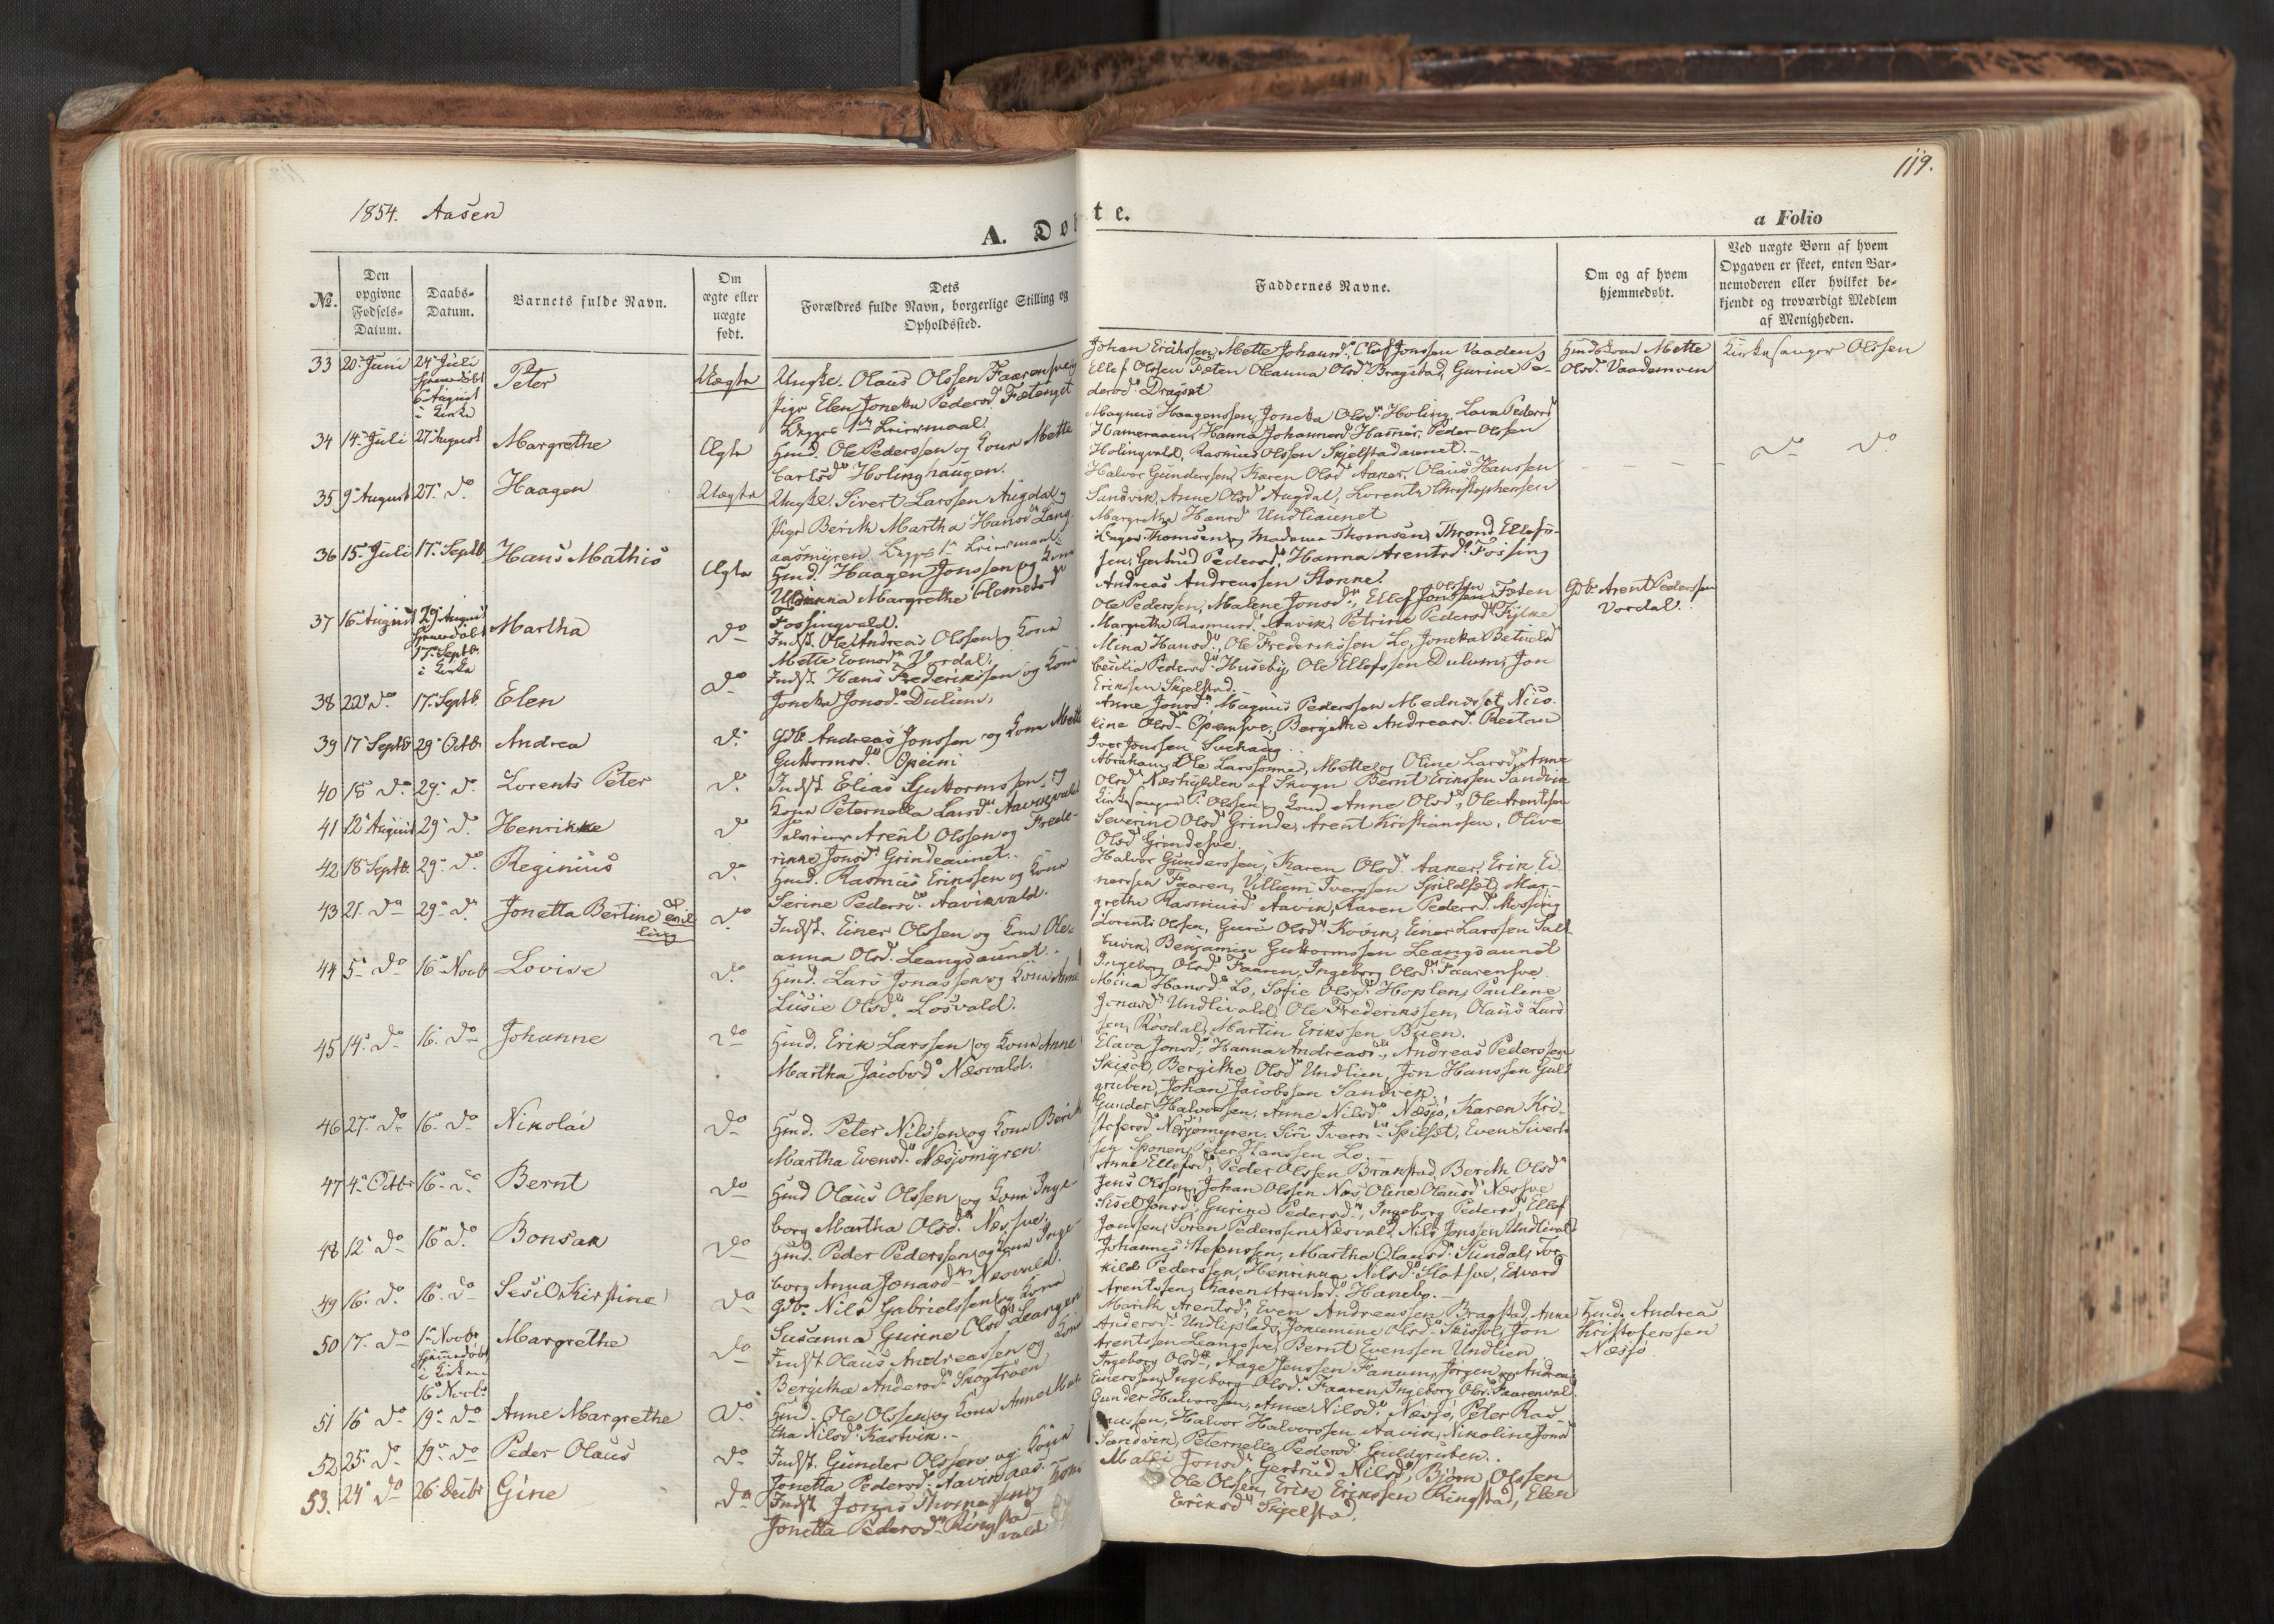 119.
1854. Aasen
A. Døbte.
a Folio
№.
Den opgivne Fødsels-Datum.
Daabs-Datum.
Barnets fulde Navn.
Om ægte eller uægte født.
Dets Forældres fulde Navn, borgerlige Stilling og Opholdssted.
Faddernes Navne.
Om og af hvem hjemmedøbt.
Ved uægte Børn af hvem Opgaven er skeet, enten Barnemoderen eller hvilket bekjendt og troværdigt Medlem af Menigheden.
33 20 Juni 24 Juli hjemmedøbt 6 August i Kirke Peter Uægte Ungk. Olaus Olssen Faarensveg
Pige Elen Joneka Pedersd. Fætenget
Begges 1ste Leiermaal.
Johan Erikssen, Mette Johansd., Olof Jonssen Vaaden,
Ellef Olssen Fæten Oleanna Olsd. Bragstad, Gurine Pe-
dersd. Dragset
Husbd. Kone Mette
Olsd. Vaademoen
Kirkesanger Olssen
34 14 Juli 27 August Margrethe Ægte Husmd. Ole Pederssen og Kone Mette
Carlsd. Holinghaugen.
Magnus Haagenssen, Joneka Olsd. Holing, Lava Pedersd.
Hameraaen, Hanna Johannesd. Hammer, Peder Olssen
Holingvald, Rasmus Olssen Skjelstadaunet.
35 9 August 27 do Haagen Uægte Ungk. Sivert Larssen Augdal og
Pige Berith Martha Hansd. Lang-
aasmyren. Begges 1ste Leiermaal.
Halvor Gunderssen, Karen Olsd. Aaker, Olaus Hanssen
Sandvik, Anne Olsd. Augdal, Lorents Christophersen
Margrethe Hansd. Undliaunet
do do
36 15 Juli 17 Septb. Hans Mathis Ægte Husmd. Haagen Jonssen og Kone
Margrethe Clemetsd.
Fossingvald.
Thomsen og Madame Thomsen, Thrond Ellefs-
sen, Gertrud Pedersd., Hanna Arentsd. Fossing
Andreas Andreassen Stokke.
37 16 August 29 August hjemmedøbt 17 Septb. i Kirke Martha do Indst. Ole Andreas Olssen og Kone
Mette Evensd. Vordal.
Ole Pederssen, Malene Jonsd., Ellef Olssen Fæten
Margrethe Rasmusd. Aavik, Petrine Pedersd. Fylke
Gdb. Arent Pederssen
Vordal.
38 22 do 17 Septb. Elen do Indst. Hans Frederikssen og Kone
Joneka Jonsd. Dulum.
Mina Hansd., Ole Frederikssen Lo, Joneka
Cecilia Pedersd. Huseby Ole Ellefssen Dulum, Jon
Erikssen Skjelstad.
39 17 Septb 29 Octb. Andrea do Gdb. Andreas Jonssen og Kone Mette
Guttormsd. Opeim
Anne Jonsd., Magnus Pederssen Mednesset, Nico-
line Olsd. Opemsve, Bergithe Andreasd. Reitan
Iver Jonssen Svehaug.
40 18 do 29 do Lorents Peter do Indst. Elias Guttormssen og
Kone Peternella Larsd. Aavikvald
Abraham, Ole Larssønner, Mette og Oline Larsd., Anne
Olsd. af Skogn Bernt Erikssen Sandvik
41 12 August 29 do Henrikke do Arent Olssen og Frede-
rikke Jonsd. Grindeaunet.
Kirkesanger P. Olssen og Kone Anne Olsd., Ole Arentssen
Severine Olsd. Grinde, Arent Kristianssen, Olive
Olsd. Grindesve.
42 18 Septb. 29 do Reginius do Husmd. Rasmus Erikssen og Kone
Serine Pedersd. Aavikvald.
Halvor Gunderssen, Karen Olsd. Aaker, Erik Ei-
nerssen Faaren, Villum Iverssen Spildset, Mar-
grethe Rasmusd. Aavik, Karen Pedersd. Mossing
43 21 do 29 do Jonetta Bertine Tvilling do Indst. Einer Olssen og Kone Ole-
anna Olsd. Leangsaunet.
Lorents Olssen, Guru Olsd. Kvien, Einer Larssen Salt-
buvik, Benjamin Guttormssen Leangsaunet
Ingeborg Olsd. Faaren, Ingeborg Olsd. Faarensve.
44 5 do 16 Novb Lovise do Husmd. Lars Jonassen og Kone Anne
Lusie Olsd. Losvald.
Mina Hansd. Lo, Sofie Olsd. Hoplen, Pauline
Jonasd. Undlivald, Ole Frederikssen, Olaus Lars-
sen, Rosdal, Martin Erikssen Buen.
45 14 do 16 do Johanne do Husmd. Erik Larssen og Kone Anne
Martha Jacobsd. Næsvald.
Elava Jonsd., Hanna Andreasd., Andreas Pederssen
Skisel, Bergithe Olsd. Undlien, Jon Hanssen Guld-
gruben, Johan Jacobssen Sandvik.
46 27 do 16 do Nikolai do Husmd. Peter Nilssen og Kone Berith
Martha Evensd. Næsjomyren.
Gunder Halvorssen, Anne Nilsd. Næsjø, Karen Kri-
stofersd. Næsjomyren. Siri Iversd. Spilset, Even Siverts-
sen Sponen, Peter Hanssen Lo.
47 4 Octb. 16 do Bernt do Husmd Olaus Olssen og Kone Inge-
borg Martha Olsd. Næssve.
Anne Ellefsd., Peder Olssen Brakstad, Berith Olsd.
Jens Olssen, Johan Olssen Næs, Oline Olausd. Næssve
48 12 do 16 do Bonsak do Husmd. Peder Pederssen og Kone Inge-
borg Anna Jonasd. Næsvald.
Sisel Jonsd., Gurine Pedersd., Ingeborg Pedersd., Ellef
Jonssen, Søren Pederssen Næsvald, Nils Jonssen Undlivald
49 16 do 16 do Sesil Kirstine do Gdb. Nils Gabrielssen og Kone
Susanna Gurine Olsd. Leangen
Johannes Stefenssen, Martha Olausd. Sundal, Tor-
kild Pederssen, Henrikka Nilsd. Flatsve, Edvard
Arentssen, Karen Arentsd. Haneby.
50 17 do 1 Novb. hjemmedøbt i Kirken 16 Novb. Margrethe do Indst. Olaus Andreassen og Kone
Bergitha Andersd. Skogtrøen
Marith Arentsd., Even Andreassen Bragstad, Anne
Andersd. Undliplads, Jokumine Olsd. Skissel, Jon
Arentssen Leangsve, Bernt Evenssen Undlien
Husmd. Andreas
Kristoferssen
Næsjø
51 16 do 19 do Anne Margrethe do Husmd. Ole Olssen og Kone Anne Mar-
tha Nilsd. Kastvik.
Ingeborg Olsd., Aage Jenssen Fanum, Jørgen og Andreas
Einerssen, Ingeborg Olsd. Faaren, Ingeborg Olsd. Faarenvald.
52 25 do 19 do Peder Olaus do Indst. Gunder Olssen og Kone
Jonetta Pedersd. Aavikaas.
Gunder Halvorssen, Anne Nilsd. Næsjø, Peter Ras-
mussen, Halvor Halvorssen Aavik, Nikoline Jonsd.
Sandvik, Peternella Pedersd. Guldgruben.
53. 24 do 26 Decbr Gine do Indst. Jonas Thomassen og Kone
Jonetta Pedersd. Ringstad
vald
Malfi Jonsd., Gertrud Nilsd., Bjørn Olssen
Ole Olssen, Erik Erikssen Ringstad, Elen
Eriksd. Skjelstad.